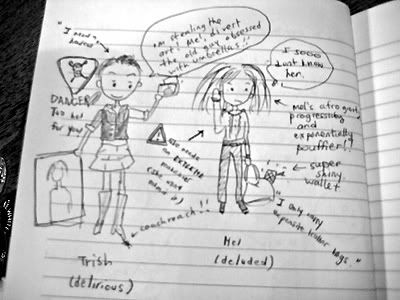 "I need a
haircut"
I'm stealing the
art! Mel, divert
the old guy obsessed
with umbrellas!!
I sooo
dont know
her.
DANGER
Too hot
for you
Mel's afro
progressively
and
exponentially
pouffier!!
needs
EXTREME
(she wont
super
shiny
wallet
"I only carry
expensive leather bags."
cockroach!!
Trish
(delirious)
Mel
(deluded)